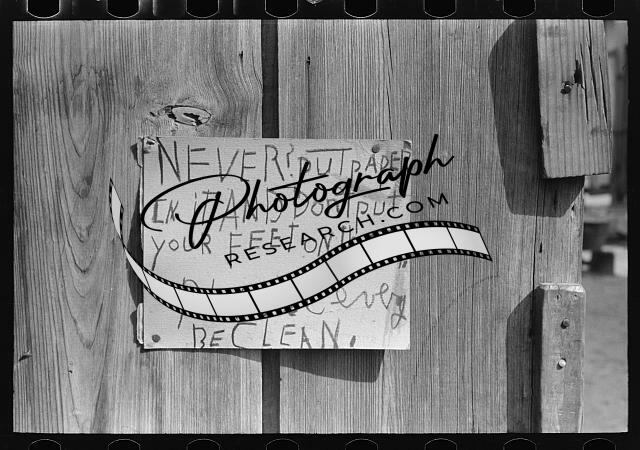 NEVER? PUT PAPER
IN IT AND PUT
YOUR FEET ON
every
BE CLEAN.
Photograph
RESEARCH.COM